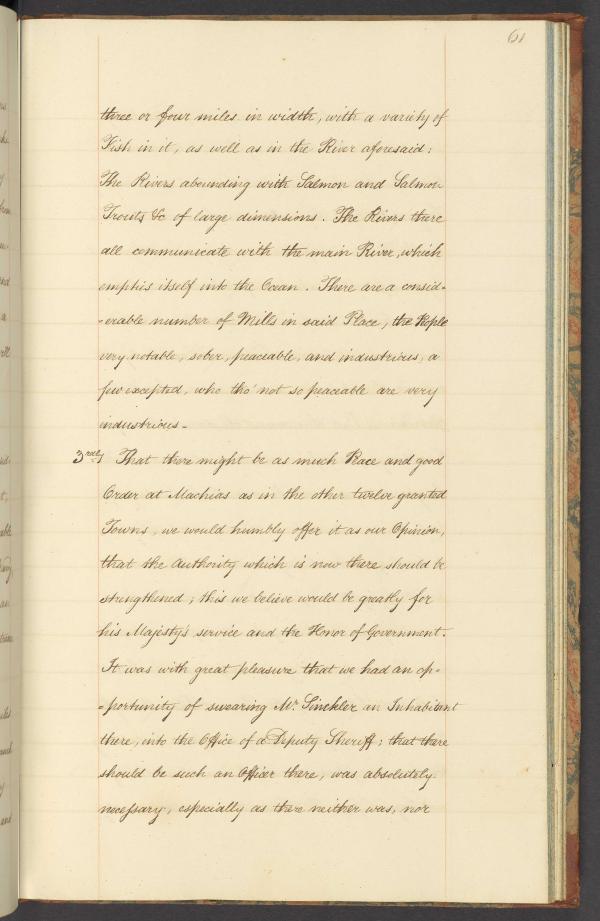 61
three or four miles in width, with a variety of
Fish in it, as well as in the River aforesaid:
The Rivers abounding with Salmon and Salmon
Trouts &c of large dimensions. The Rivers there
all communicate with the main River, which
empties itself into the Ocean. There are a consid-
-erable number of Mills in said Place, the People
very notable, sober, peaceable, and industrious, a
few excepted, who tho' not so peaceable are very
industrious -
3rdly That there might be as much Peace and good
Order at Machias as in the other twelve granted
Towns, we would humbly offer it as our Opinion,
that the Authority which is now there should be
strengthened; this we believe would be greatly for
his Majesty's service and the Honor of Government.
It was with great pleasure that we had an op-
-portunity of swearing Mr. Sinckler an Inhabitant
there, into the Office of a Deputy Sheriff; that there
should be such an Officer there, was absolutely
necessary, especially as there neither was, nor